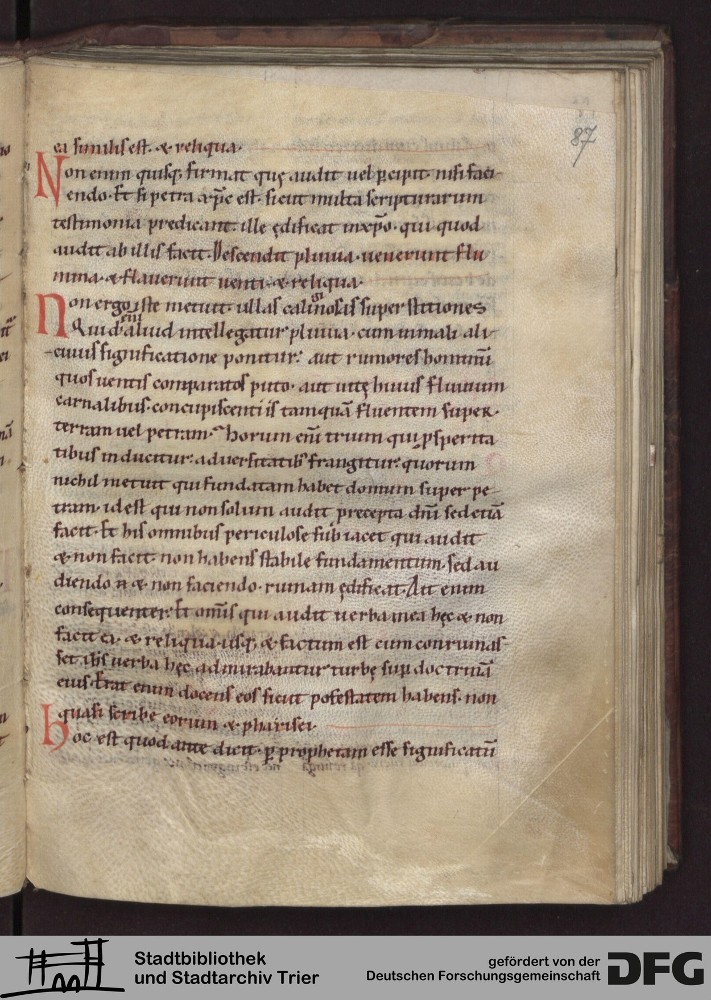 87
ea similis est. & reliqua.
Non enim quisq; firmat quę audit uel p̄cipit. nisi faci
endo. Et si petra xp̄c est. sicut multa scripturarum
testimonia predicant. ille ędificat in xp̄o. qui quod
audit ab illis facit. Descendit pluuia. uenerunt flu
mina. & flauerunt uenti. & reliqua.
Non ergo iste metuit ullas superstitiones
Quid enī aliud intellegatur pluuia. cum in mali ali
cuius significatione ponitur: aut rumores hominū
quos uentis comparatos puto. aut uitę huius fluuium
carnalibus concupiscentiis tamquā fluentem super
terram uel petram. horum enī trium qui psperita
tibus inducitur. aduersitatib; frangitur. quorum
nichil metuit qui fundatam habet domum super pe
tram. id est qui non solum audit precepta dn̄i sed etiā
facit. Et his omnibus periculose subiacet qui audit
& non facit. non habens stabile fundamentum. sed au
diendo & non faciendo. ruinam ędificat. Ait enim
consequenter. Et omīs qui audit uerba mea hęc & non
facit ea. & reliqua. usq; & factum est cum consummas
set ihs uerba hęc admirabantur turbę sup doctrinā
eius. Erat enim docens eos sicut potestatem habens. non
quasi scribe eorum & pharisei.
Hoc est quod ante dicit. p prophetam esse significatū
Stadtbibliothek
und Stadtarchiv Trier
gefördert von der
Deutschen Forschungsgemeinschaft
DFG